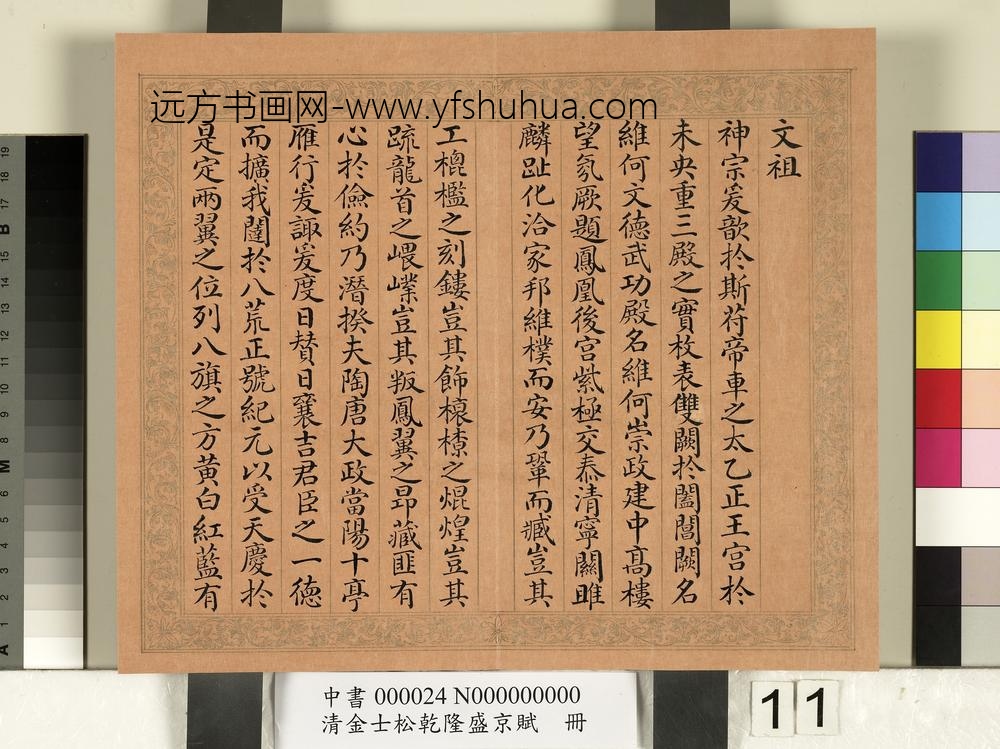 远方书画网-www.yfshuhua.com
文祖
神宗爰歆扵斯苻帝車之太乙正王宫扵
未央重三殿之實枚表雙闕扵闔閭闕名
維何文德武功殿名維何崇政建中髙樓
望氛厥題鳳凰後宫紫極交泰清寧關雎
麟趾化洽家邦維樸而安乃鞏而臧豈其
工楹檻之刻鏤豈其飾榱橑之焜煌豈其
䟽龍首之㟪嶫豈其叛鳳翼之昂藏匪有
心扵儉約乃潛揆夫陶唐大政當陽十亭
雁行爰諏爰度曰賛曰襄吉君臣之一德
而擴我闥扵八荒正號紀元以受天慶扵
是定兩翼之位列八旗之方黄白紅藍有
中書 000024 N000000000
清金士松乾隆盛京賦 冊
11
19
18
17
B
16
15
14
13
12
11
10
9
8
M
7
6
5
4
3
2
1
A